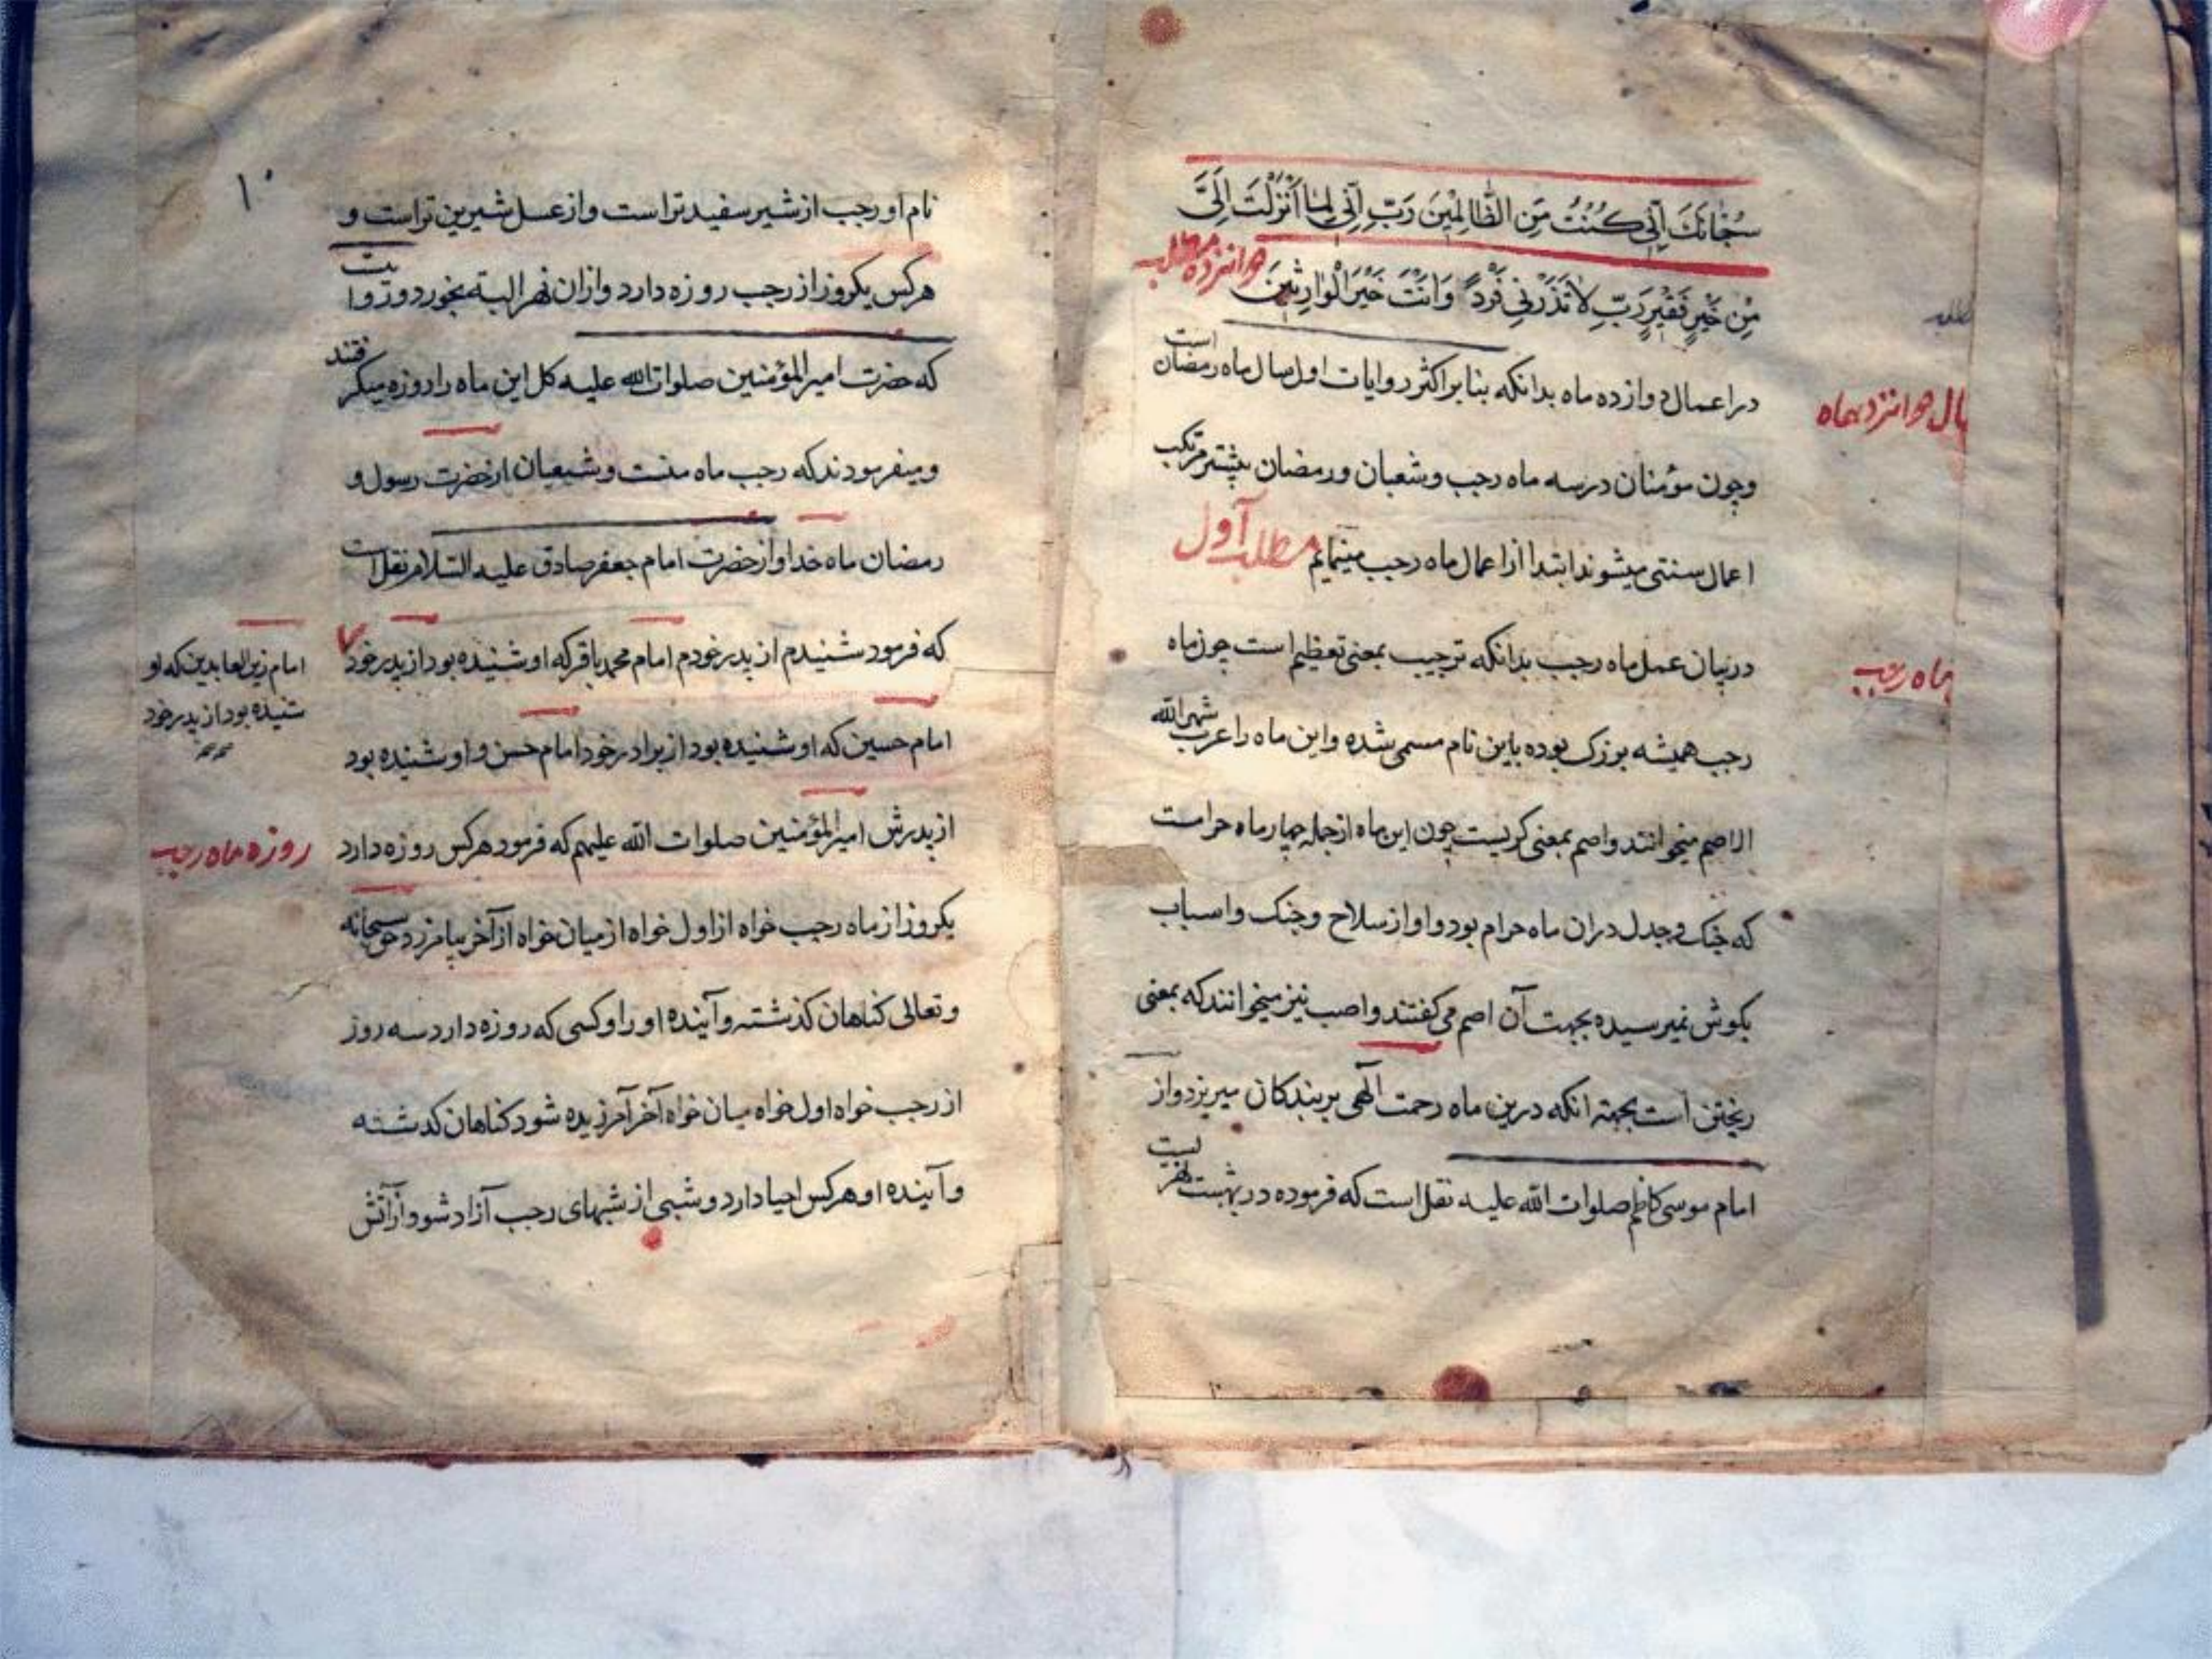 سُبْحَانَكَ اِنِّی كُنْتُ مِنَ الظَّالِمِینَ رَبِّ اِنِّی لِمٰا اَنْزَلْتَ اِلَیَّ
مِنْ خَیْرٍ فَقیرٍ رَبِّ لاٰ تَذَرْنِی فَرْداً وَاَنْتَ خَیْرُ الْوٰارِثینَ
در اعمال دوازده ماه بدانکه بنا بر اکثر روایات اول سال ماه رمضان است
و چون مؤمنان در سه ماه رجب و شعبان و رمضان بیشتر مرتکب
اعمال سنتی میشوند ابتدا از اعمال ماه رجب مینمایم مطلب اول
در بیان عمل ماه رجب بدانکه ترجیب بمعنی تعظیم است چون ماه
ماه رجب
رجب همیشه بزرک بوده باین نام مسمی شده و این ماه را عرب شهر الله
الاصم میخوانند و اصم بمعنی کریست چون این ماه از جمله چهار ماه حرامست
که جنک و جدل دران ماه حرام بود و اواز سلاح و جنک و اسباب
بکوش نمیرسیده بجهت آن اصم می کفتند و اصب نیز میخوانند که بمعنی
ریختن است بجهته انکه درین ماه رحمت آلهی بر بندکان میریزد و از
امام موسی کاظم صلوات الله علیه نقل است که فرموده در بهشت نهر یست
۱۰
نام او رجب از شیر سفید تر است و از عسل شیرین تر است و
هر کس یکروز از رجب روزه دارد و ازان نهر البته بخورد و
که حضرت امیر المؤمنین صلوات الله علیه کل این ماه را روزه میکرفتند
و میفرمودند که رجب ماه منست و شعبان از حضرت رسول و
رمضان ماه خدا و از حضرت امام جعفر صادق علیه السلام نقل است
که فرمود شنیدم از پدر خودم امام محمد باقر که او شنیده بود از پدر خود
امام زین العابدین که او
شنیده بود از پدر خود
امام حسین که او شنیده بود از برادر خود امام حسن و او شنیده بود
از پدرش امیر المؤمنین صلوات الله علیهم که فرمود هر کس روزه دارد
روزه ماه رجب
یکروز از ماه رجب خواه از اول خواه از میان خواه از آخر بیامرزد حق سبحانه
و تعالی کناهان کذشته و آینده او را و کسی که روزه دارد سه روز
از رجب خواه اول خواه میان خواه آخر آمرزیده شود کناهان کدشته
و آینده او هر کس احیا دارد و شبی از شبهای رجب آزاد شود از آتش